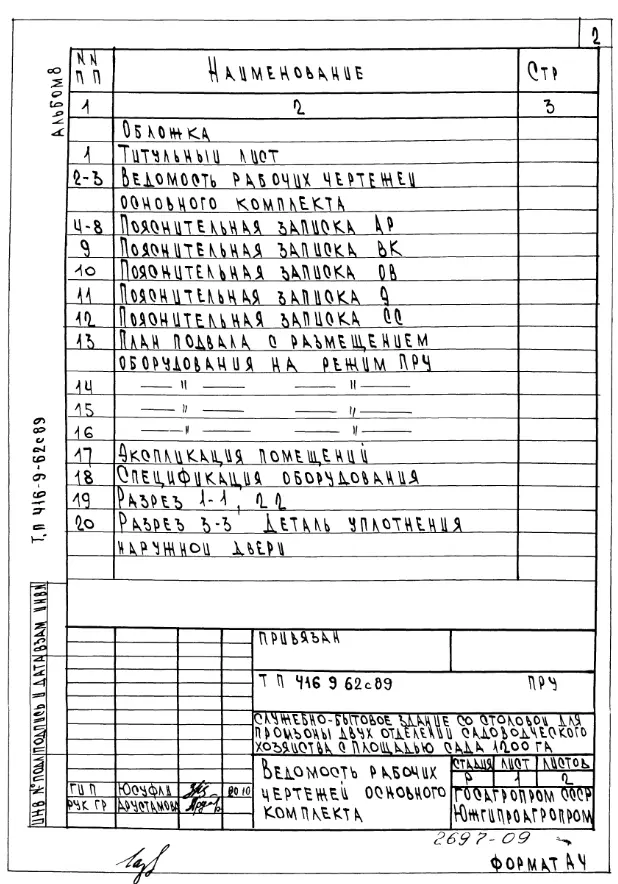 2
Альбом 8
NN ПП Наименование Стр
1 2 3
Обложка
1 Титульный лист
2-3 Ведомость рабочих чертежей
основного комплекта
4-8 Пояснительная записка АР
9 Пояснительная записка ВК
10 Пояснительная записка ОВ
11 Пояснительная записка Э
12 Пояснительная записка СС
13 План подвала с размещением
оборудования на режим ПРУ
14 — " — — " —
15 — " — — " —
16 — " — — " —
17 Экспликация помещений
18 Спецификация оборудования
19 Разрез 1-1, 2 2
20 Разрез 3-3 Деталь уплотнения
наружной двери
Т.П 416-9-62с89
ИНВ № подл Подпись и дата Взам инв№
Привязан
Т П 416 9 62с89 ПРУ
Служебно-бытовое здание со столовой для
промзоны двух отделений садоводческого
хозяйства с площадью сада 1200 га
Ведомость рабочих
чертежей основного
комплекта
Стадия Лист Листов
Р 1 2
Госагропром СССР
Южгипроагропром
ГИП Юсуфли
Рук гр Арустамова
2697-09
Формат А4